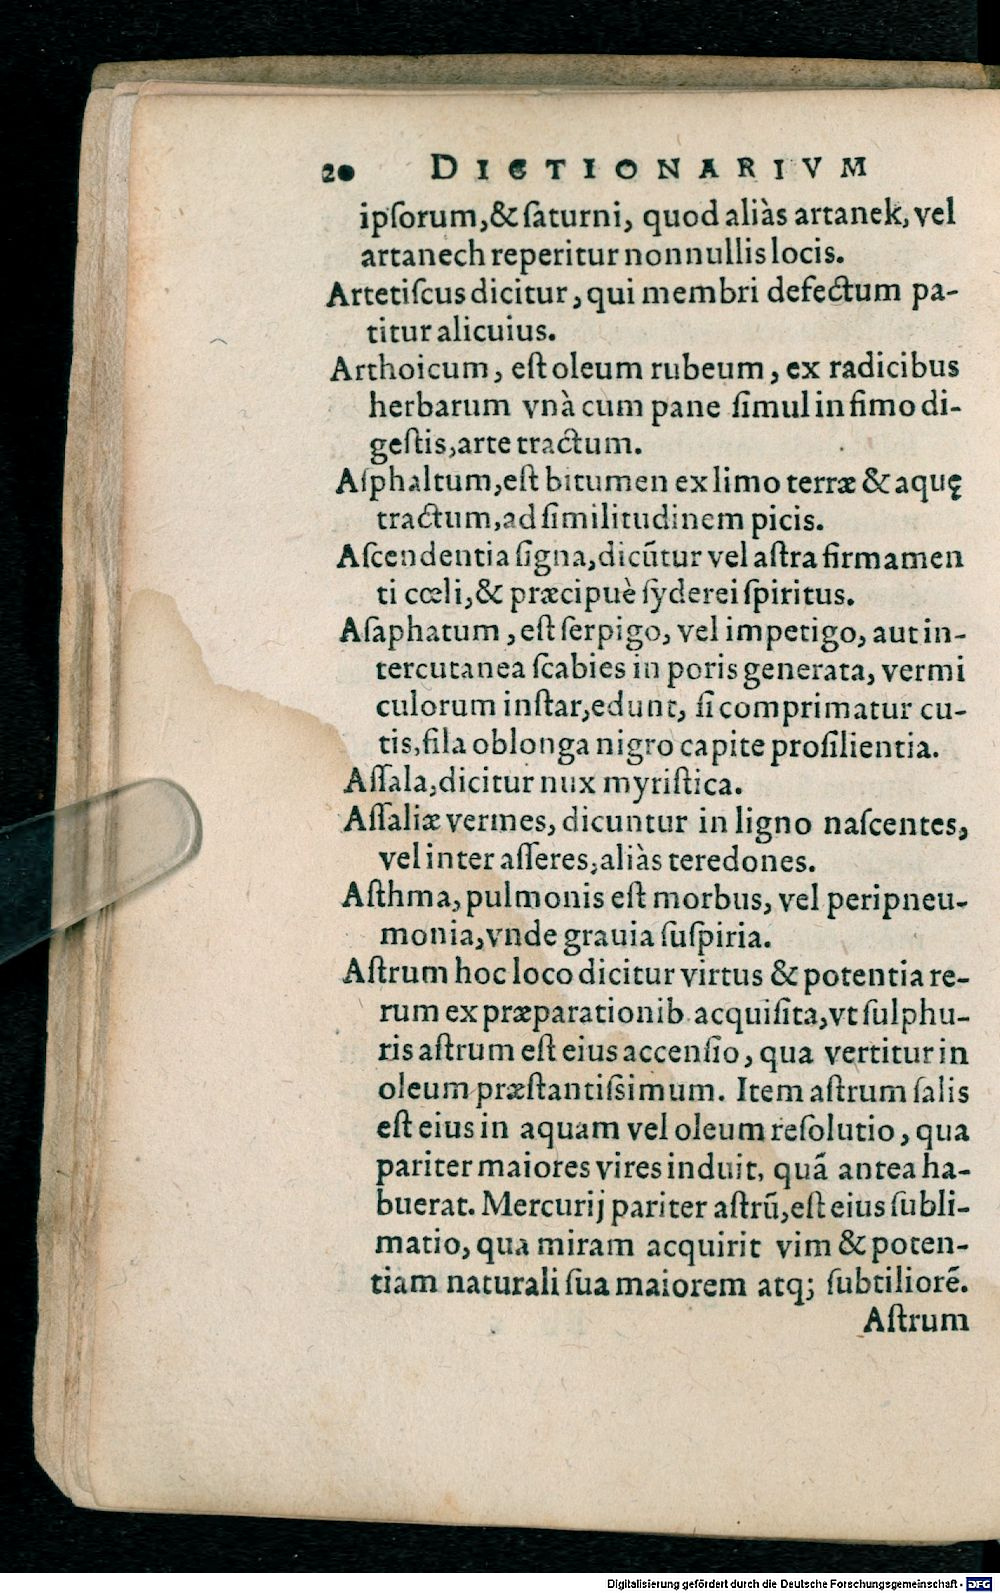 20 DICTIONARIVM
ipſorum,& ſaturni, quod aliàs artanek, vel
artanech reperitur nonnullis locis.
Artetiſcus dicitur, qui membri defectum pa-
titur alicuius.
Arthoicum, eſt oleum rubeum, ex radicibus
herbarum vnà cum pane ſimul in fimo di-
geſtis, arte tractum.
Aſphaltum, eſt bitumen ex limo terræ & aquę
tractum, ad ſimilitudinem picis.
Aſcendentia ſigna, dicũtur vel aſtra firmamen
ti cœli, & præcipuè ſyderei ſpiritus.
Aſaphatum, eſt ſerpigo, vel impetigo, aut in-
tercutanea ſcabies in poris generata, vermi
culorum inſtar, edunt, ſi comprimatur cu-
tis, fila oblonga nigro capite proſilientia.
Aſſala, dicitur nux myriſtica.
Aſſaliæ vermes, dicuntur in ligno naſcentes,
vel inter aſſeres, aliàs teredones.
Aſthma, pulmonis eſt morbus, vel peripneu-
monia, vnde grauia ſuſpiria.
Aſtrum hoc loco dicitur virtus & potentia re-
rum ex præparationib. acquiſita, vt ſulphu-
ris aſtrum eſt eius accenſio, qua vertitur in
oleum præſtantiſsimum. Item aſtrum ſalis
eſt eius in aquam vel oleum reſolutio, qua
pariter maiores vires induit, quã antea ha-
buerat. Mercurij pariter aſtrũ, eſt eius ſubli-
matio, qua miram acquirit vim & poten-
tiam naturali ſua maiorem atq; ſubtiliorẽ.
Aſtrum
Digitalisierung gefördert durch die Deutsche Forschungsgemeinschaft - DFG